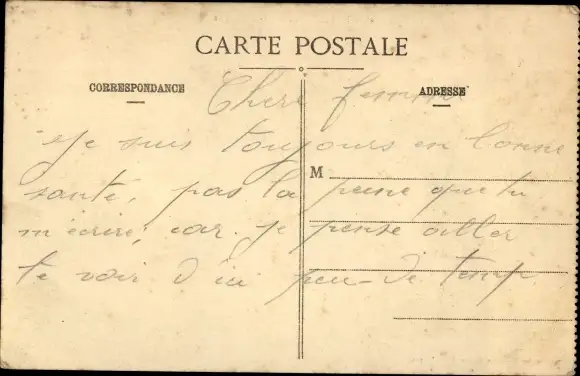 CARTE POSTALE
CORRESPONDANCE
ADRESSE
Chere femme
Je suis toujours en bonne
santé, pas la peine que tu
M
m'écrire, car je pense aller
te voir d'ici peu-de temp